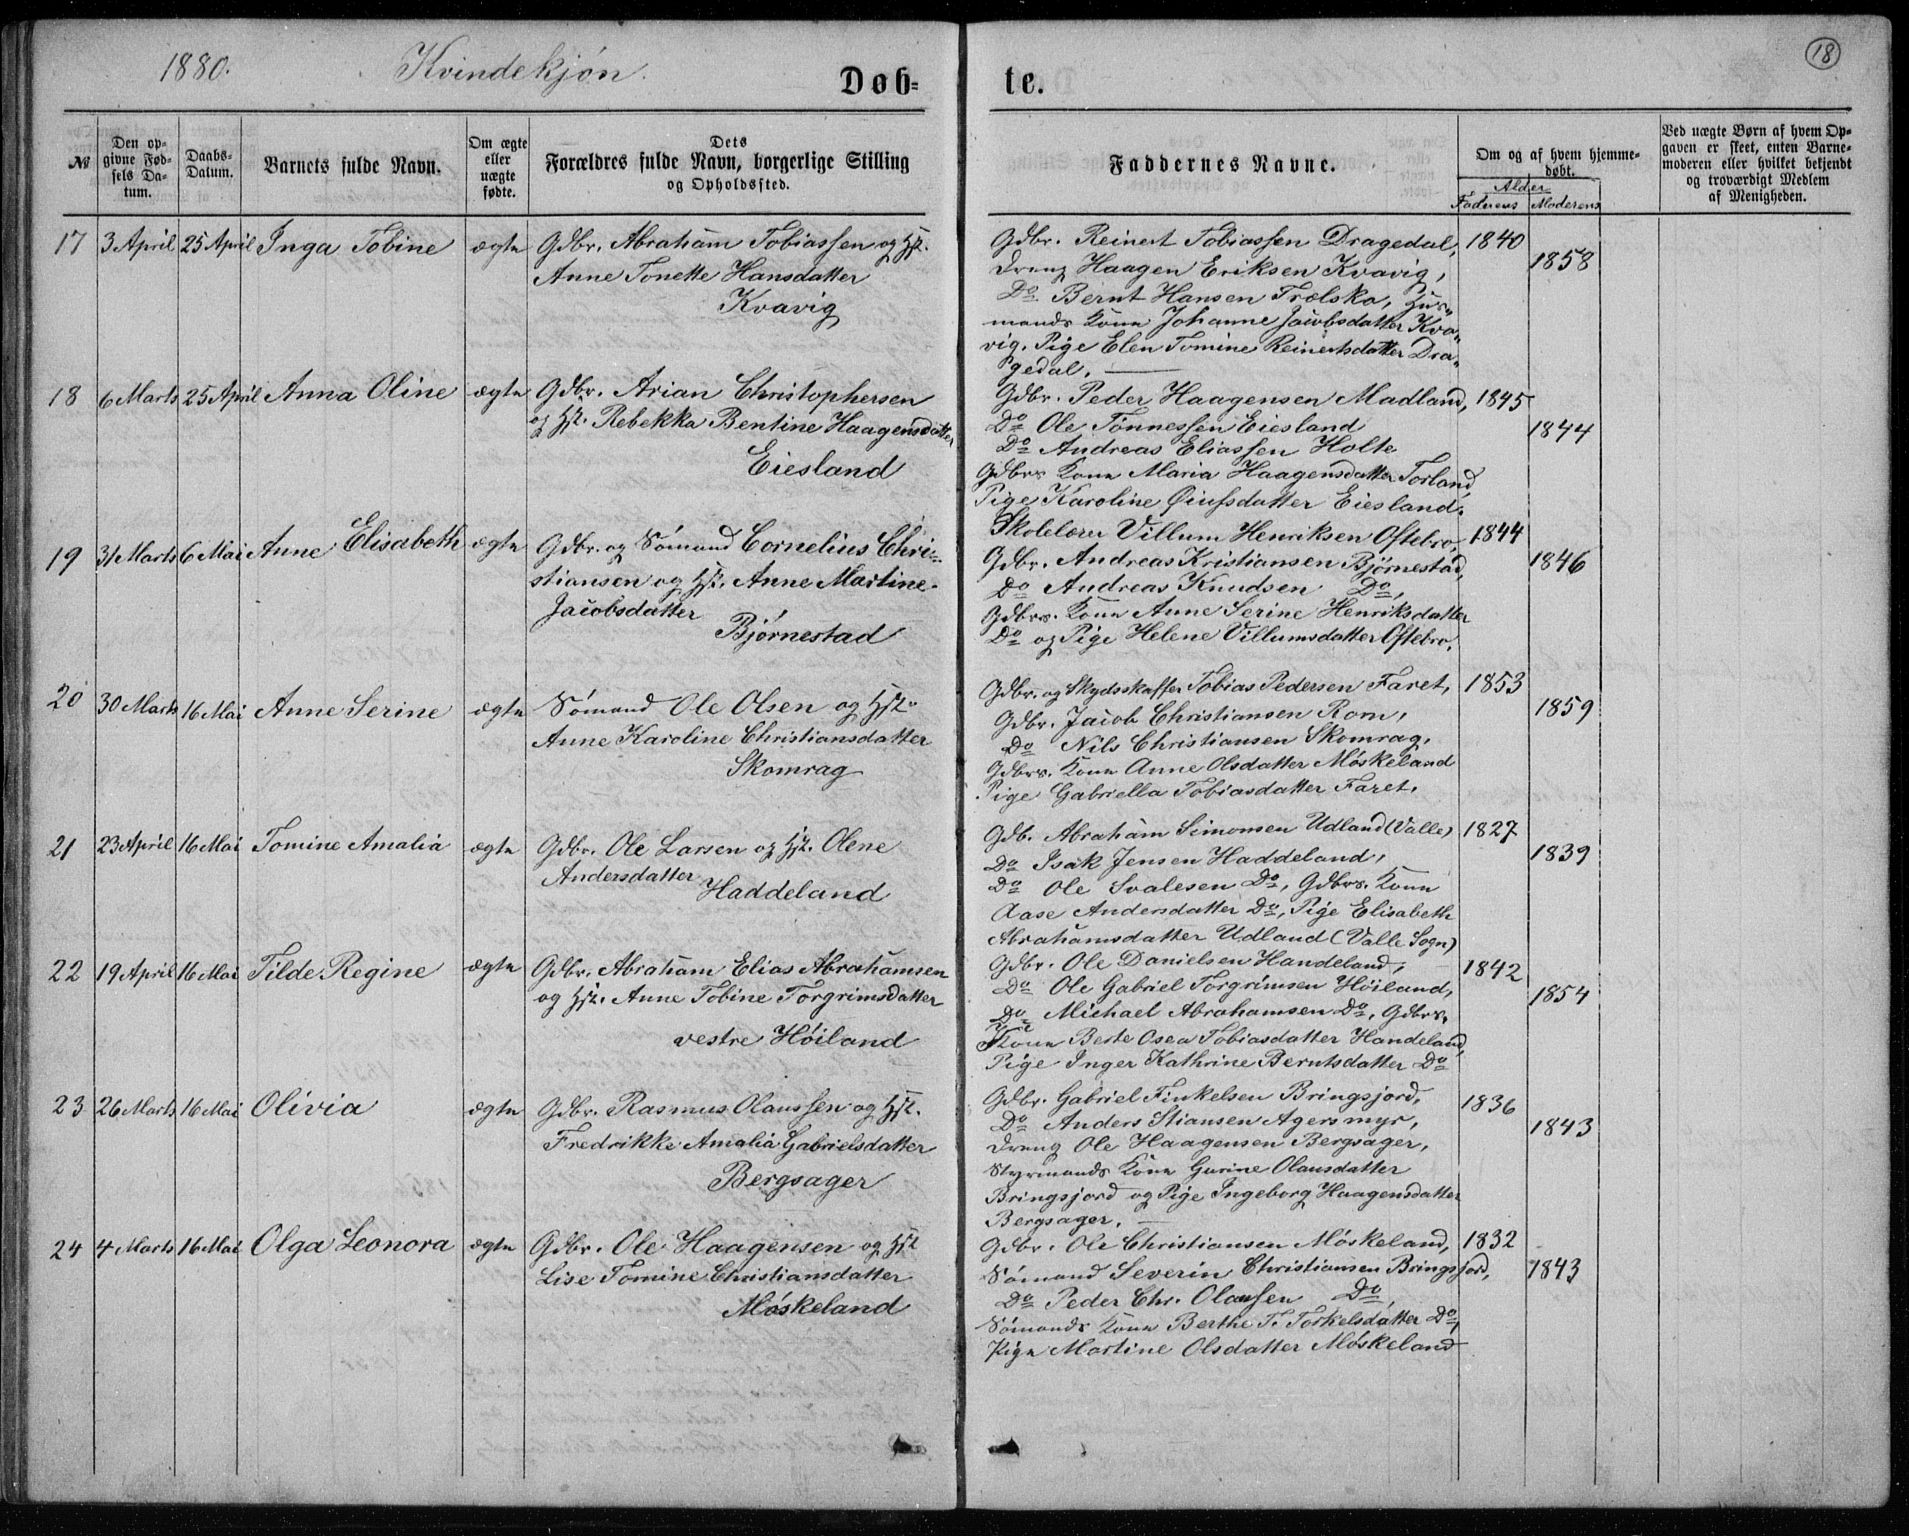 1880. Kvindekjøn. Døb-
№
Den opgivne Fødsels Datum.
Daabs-Datum.
Barnets fulde Navn.
Om ægte eller uægte fødte.
Dets Forældres fulde Navn, borgerlige Stilling og Opholdssted.
17 3 April 25 April Inga Tobine ægte Gdbr. Abraham Tobiassen og Hst.
Anne Tonette Hansdatter
Kvavig
18 6 Marts 25 April Anna Oline ægte Gdbr. Arian Christophersen
og Hst. Rebekka Bentine Haagensdatter
Eiesland
19 31 Marts 6 Mai Anne Elisabeth ægte Gdbr. og Sømand Cornelius Chri-
stiansen og Hst. Anne Martine
Jacobsdatter
Bjørnestad
20 30 Marts 16 Mai Anne Serine ægte Sømand Ole Olsen og Hst.
Anne Karoline Christiansdatter
Skomrag
21 23 April 16 Mai Tomine Amalia ægte Gdbr. Ole Larsen og Hst. Olene
Andersdatter
Haddeland
22 19 April 16 Mai Tilde Regine ægte Gdbr. Abraham Elias Abrahamsen
og Hst. Anne Tobine Torgrimsdatter
vestre Høiland
23 26 Marts 16 Mai Olivia ægte Gdbr. Rasmus Olaussen og Hst.
Fredrikke Amalia Gabrielsdatter
Bergsager
24 4 Marts 16 Mai Olga Leonora ægte Gdbr. Ole Haagensen og Hst
Lise Tomine Christiansdatter
Møskeland
te. 18
Faddernes Navne.
Om og af hvem hjemme-
døbt.
Alder
Faderens Moderens
Ved uægte Børn af hvem Op-
gaven er skeet, enten Barne-
moderen eller hvilket bekjendt
og troværdigt Medlem
af Menigheden.
Gdbr. Reinert Tobiassen Dragedal, 1840
Dreng Haagen Eriksen Kvavig, 1858
Do Bernt Hansen Trælsko, Hus-
mands Kone Johanne Jacobsdatter Kva-
vig. Pige Elen Tomine Reinertsdatter Dra-
gedal.
Gdbr. Peder Haagensen Madland, 1845
Do Ole Tønnessen Eiesland 1844
Do Andreas Eliassen Holte
Gdbrs Kone Maria Haagensdatter Torland,
Pige Karoline datter Eiesland.
Skolelærer Villum Henriksen Oftebro, 1844
Gdbr. Andreas Kristiansen Bjørnestad, 1846
Do Andreas Knudsen Do,
Gdbrs. Kone Anne Serine Henriksdatter
Do og Pige Helene Villumsdatter Oftebro.
Gdbr. og Skydsskaffer Tobias Pedersen Faret, 1853
Gdbr. Jacob Christiansen Rom, 1859
Do Nils Christiansen Skomrag,
Gdbrs. Kone Anne Olsdatter Møskeland
Pige Gabriella Tobiasdatter Faret.
Gdb. Abraham Simonsen Udland (Valle) 1827
Do Isak Jensen Haddeland, 1839
Do Ole Svalesen Do, Gdbrs. Kone
Aase Andersdatter Do, Pige Elisabeth
Abrahamsdatter Udland (Valle Sogn)
Gdbr. Ole Danielsen Handeland, 1842
Do Ole Gabriel Torgrimsen Høiland, 1854
Do Michael Abrahamsen Do, Gdbrs.
Kone Berte Osea Tobiasdatter Handeland,
Pige Inger Kathrine Berntsdatter Do
Gdbr. Gabriel Finkelsen Bringsjord, 1836
Do Anders Stiansen Agersmyr, 1843
Dreng Ole Haagensen Bergsager,
Styrmands Kone Gurine Olausdatter
Bringsjord og Pige Ingeborg Haagensdatter
Bergsager.
Gdbr. Ole Christiansen Møskeland, 1832
Sømand Severin Christiansen Bringsjord, 1843
Do Peder Chr. Olaussen Do,
Sømands Kone Berthe T. Torkelsdatter Do,
Pige Martine Olsdatter Møskeland